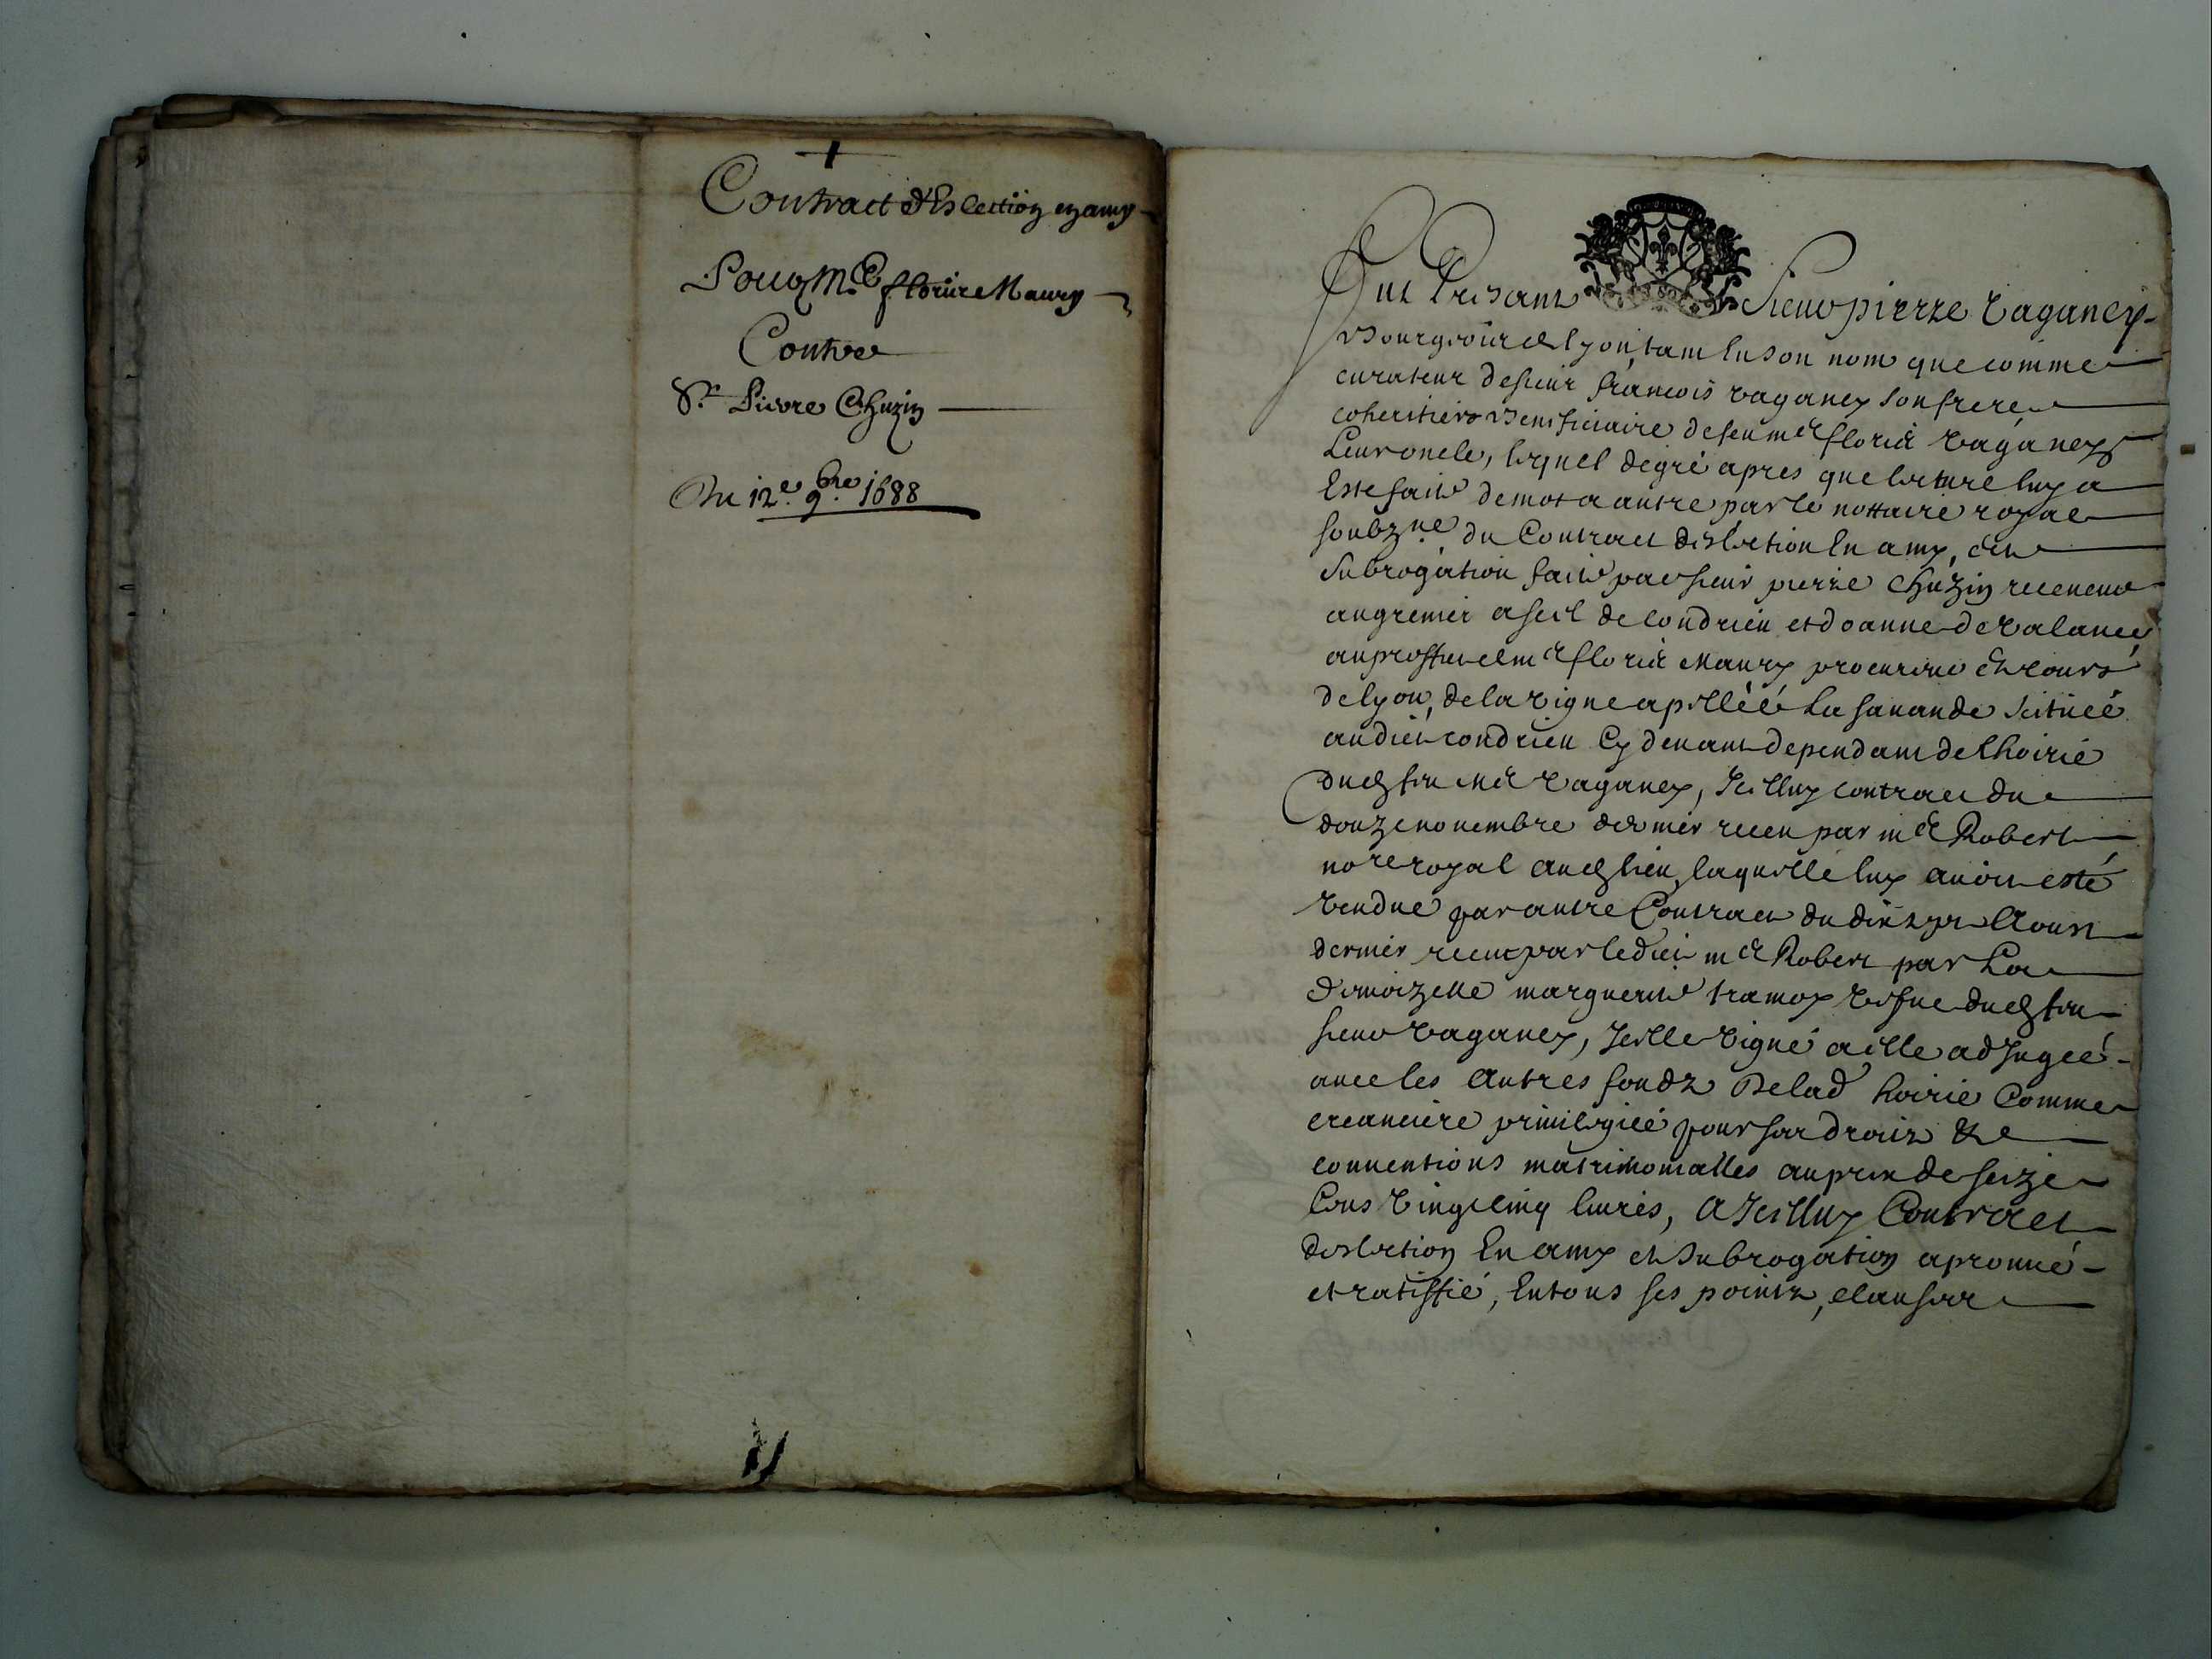 Contract d'Eslection en amy
Pour Me florir Maury
Contre
Sr. Pierre Chuzin
Du 12e. 9bre 1688
Fut Presant Sieur pierre Vaganey
Bourgeois de lyon, tant en son nom que comme
curateur de sieur françois vaganey son frere
coheritiers Beneficiaire de feu me florir vaganey
Leur oncle, lequel de gré apres que lecture luy a
Este faite de mot a autre par le nottaire royal
soubzne du Contract deslection En amy, et
subrogation faite par sieur pierre Chuzin receveur
au grenier a sel de condrieu et doanne de valance
au proffit de me florir Maury procureur ez cours
de lyon, de la vigne apellée La sarande scituée
audict condrieu Cy devant dependant de l'hoirie
dud feu me vaganey, Icelluy contract du
douze novembre dernier receu par me Robert
nore royal aud lieu, laquelle luy avoit esté
vendue par autre Contract du dix sept Aoust
dernier receu par ledict me Robert par La
demoizelle marguerite tramoy vefve dud feu
sieur vaganey, Icelle vigne a elle adjugée
avec les autres fondz de lad hoirie Comme
creanciere privilegiée pour ses droitz &
conventions matrimonialles au prix de seize
Cens vingt cinq livres, a Icelluy Contract
deslection En amy et subrogation aprouvé
et ratiffié, En tous ses pointz, clauses